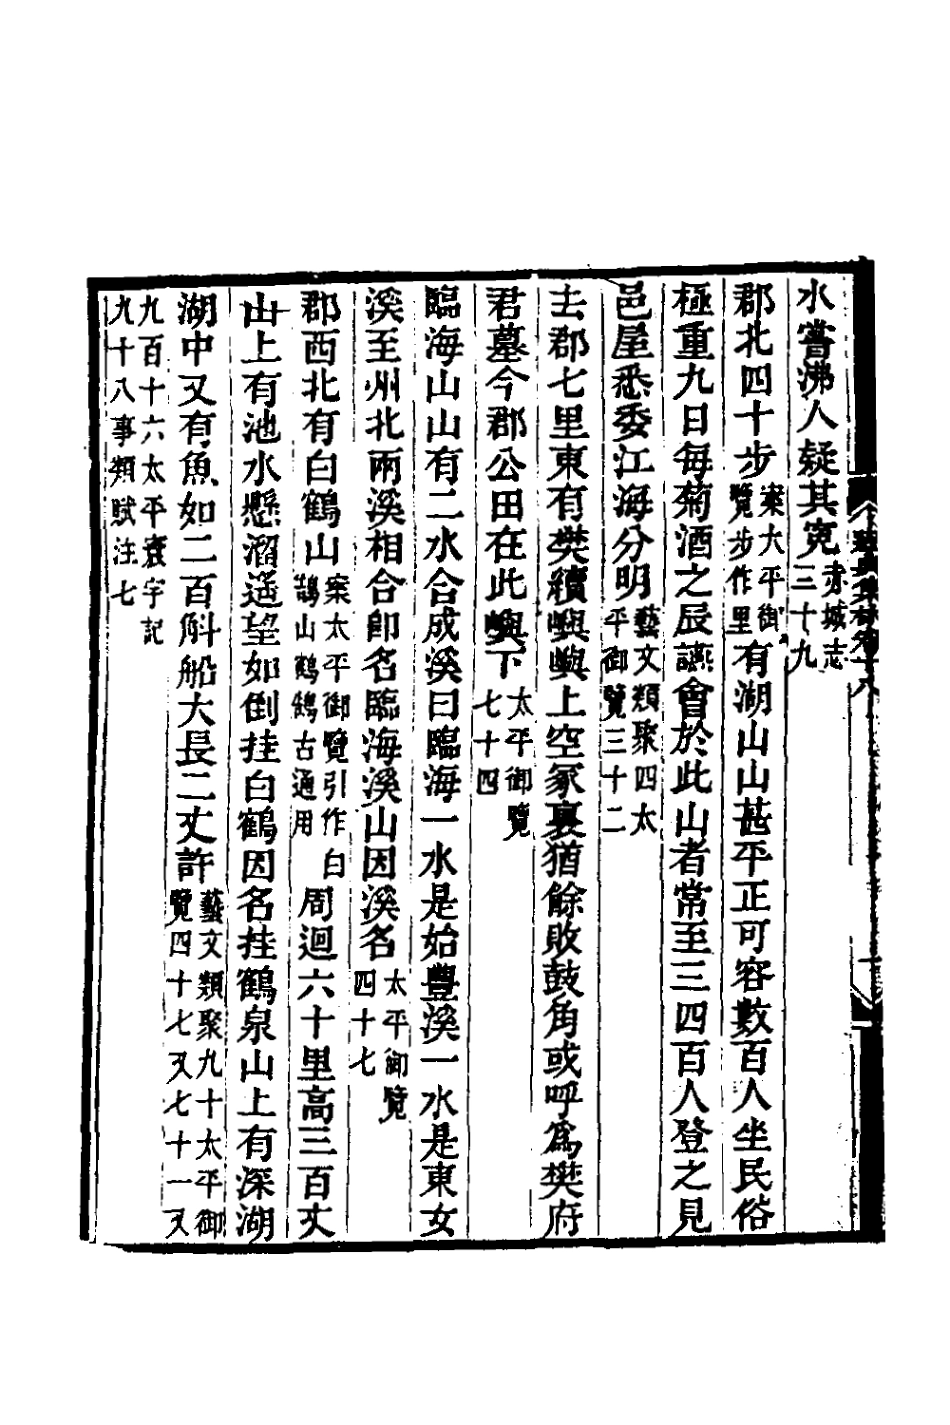 水嘗沸人疑其冤赤城志三十九
郡北四十步案太平御覽步作里有湖山山甚平正可容數百人坐民俗
極重九日每菊酒之辰讌會於此山者常至三四百人登之見
邑屋悉委江海分明藝文類聚四太平御覽三十二
去郡七里東有樊續嶼嶼上空冢裏猶餘敗鼓角或呼爲樊府
君墓今郡公田在此嶼下太平御覽七十四
臨海山山有二水合成溪曰臨海一水是始豐溪一水是東女
溪至州北兩溪相合卽名臨海溪山因溪名太平御覽四十七
郡西北有白鶴山案太平御覽引作白鵠山鶴鵠古通用周迴六十里高三百丈
山上有池水懸溜遥望如倒挂白鶴因名挂鶴泉山上有深湖
湖中又有魚如二百斛船大長二丈許藝文類聚九十太平御覽四十七又七十一又
九百十六太平寰宇記九十八事類賦注七